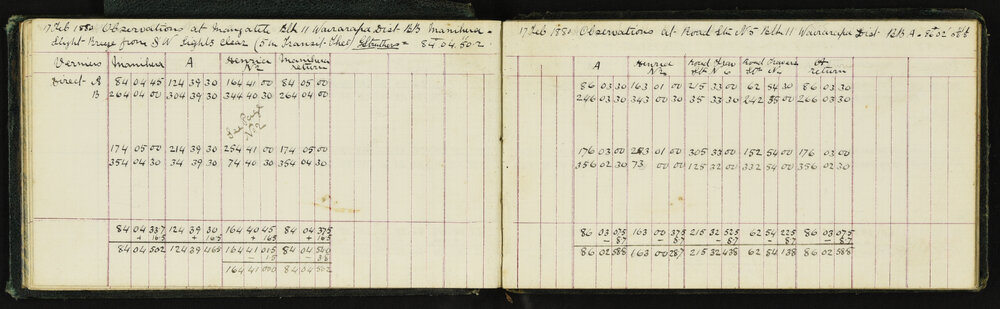 17 Feb 1880 Observations at Mangatete Blk 11 Wairarapa Dist BB Manihera =
slight Breeze from S W lights clear (5 in Transit Theo) 84° 04. 50.2
Vernier Manihera A Henrici No 2 Manihera return
Direct A 84 04 45 124 39 30 164 41 00 84 05 00
B 264 04 00 304 39 30 344 40 30 264 04 00
See Page No 2
174 05 00 214 39 30 254 41 00 174 05 00
354 04 30 34 39 30 74 40 30 354 04 30
84 04 33.7 124 39 30 164 40 45 84 04 37.5
+ 16.5 + 16.5 + 16.5 + 16.5
84 04 50.2 124 39 46.5 164 41 01.5 84 04 54.0
- 1.5 - 3.8
164 41 00.0 84 04 50.2
17 Feb 1880 Observations at Road Stn No 5 Blk 11 Wairarapa Dist BB A = 86° 02 58.8
A Henrici No 2 Road Trav Stn No 6 Road Traverse Stn No At return
86 03 30 163 01 00 215 33 00 62 54 30 86 03 30
246 03 30 343 00 30 35 33 30 242 55 00 266 03 30
176 03 00 253 01 00 305 33 00 152 54 00 176 03 00
356 02 30 73 00 00 125 32 00 332 54 00 356 02 30
86 03 07.5 163 00 37.5 215 32 52.5 62 54 22.5 86 03 07.5
- 8.7 - 8.7 - 8.7 - 8.7 - 8.7
86 02 58.8 163 00 28.7 215 32 43.8 62 54 13.8 86 02 58.8